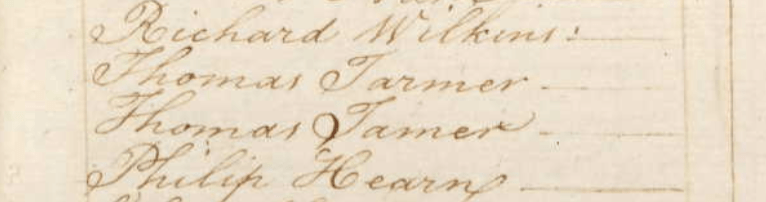 Richard Wilkins:
Thomas Tarmer
Thomas Tamer
Philip Hearn